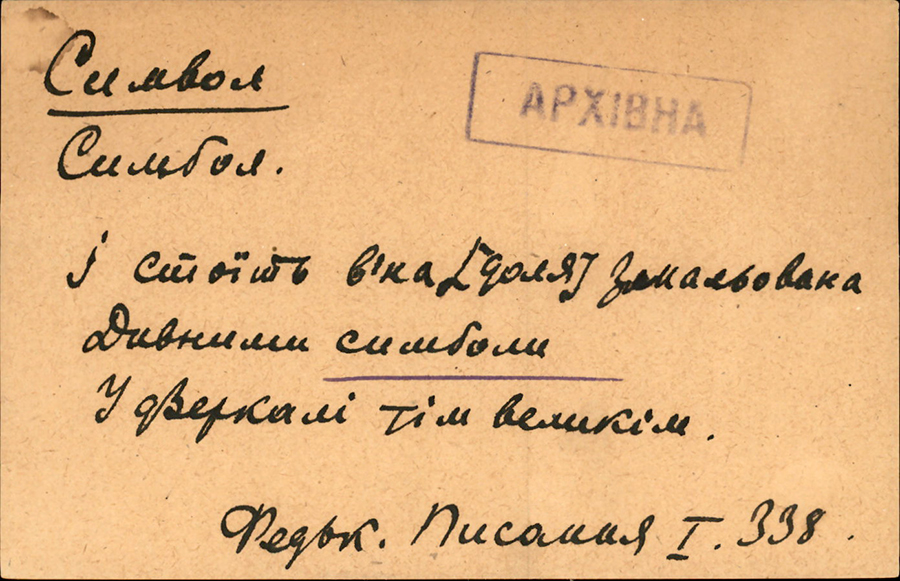 Символ
АРХІВНА
Симбол.
І стоїть віна [доля] змальована
Дивними симболи
У дзеркалі тім великім.
Федьк. Писання І. 338.